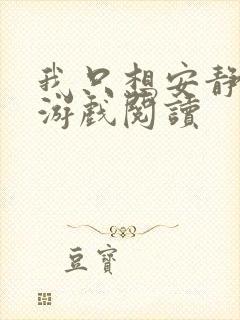 我只想安静
游戏閱讀
豆寶